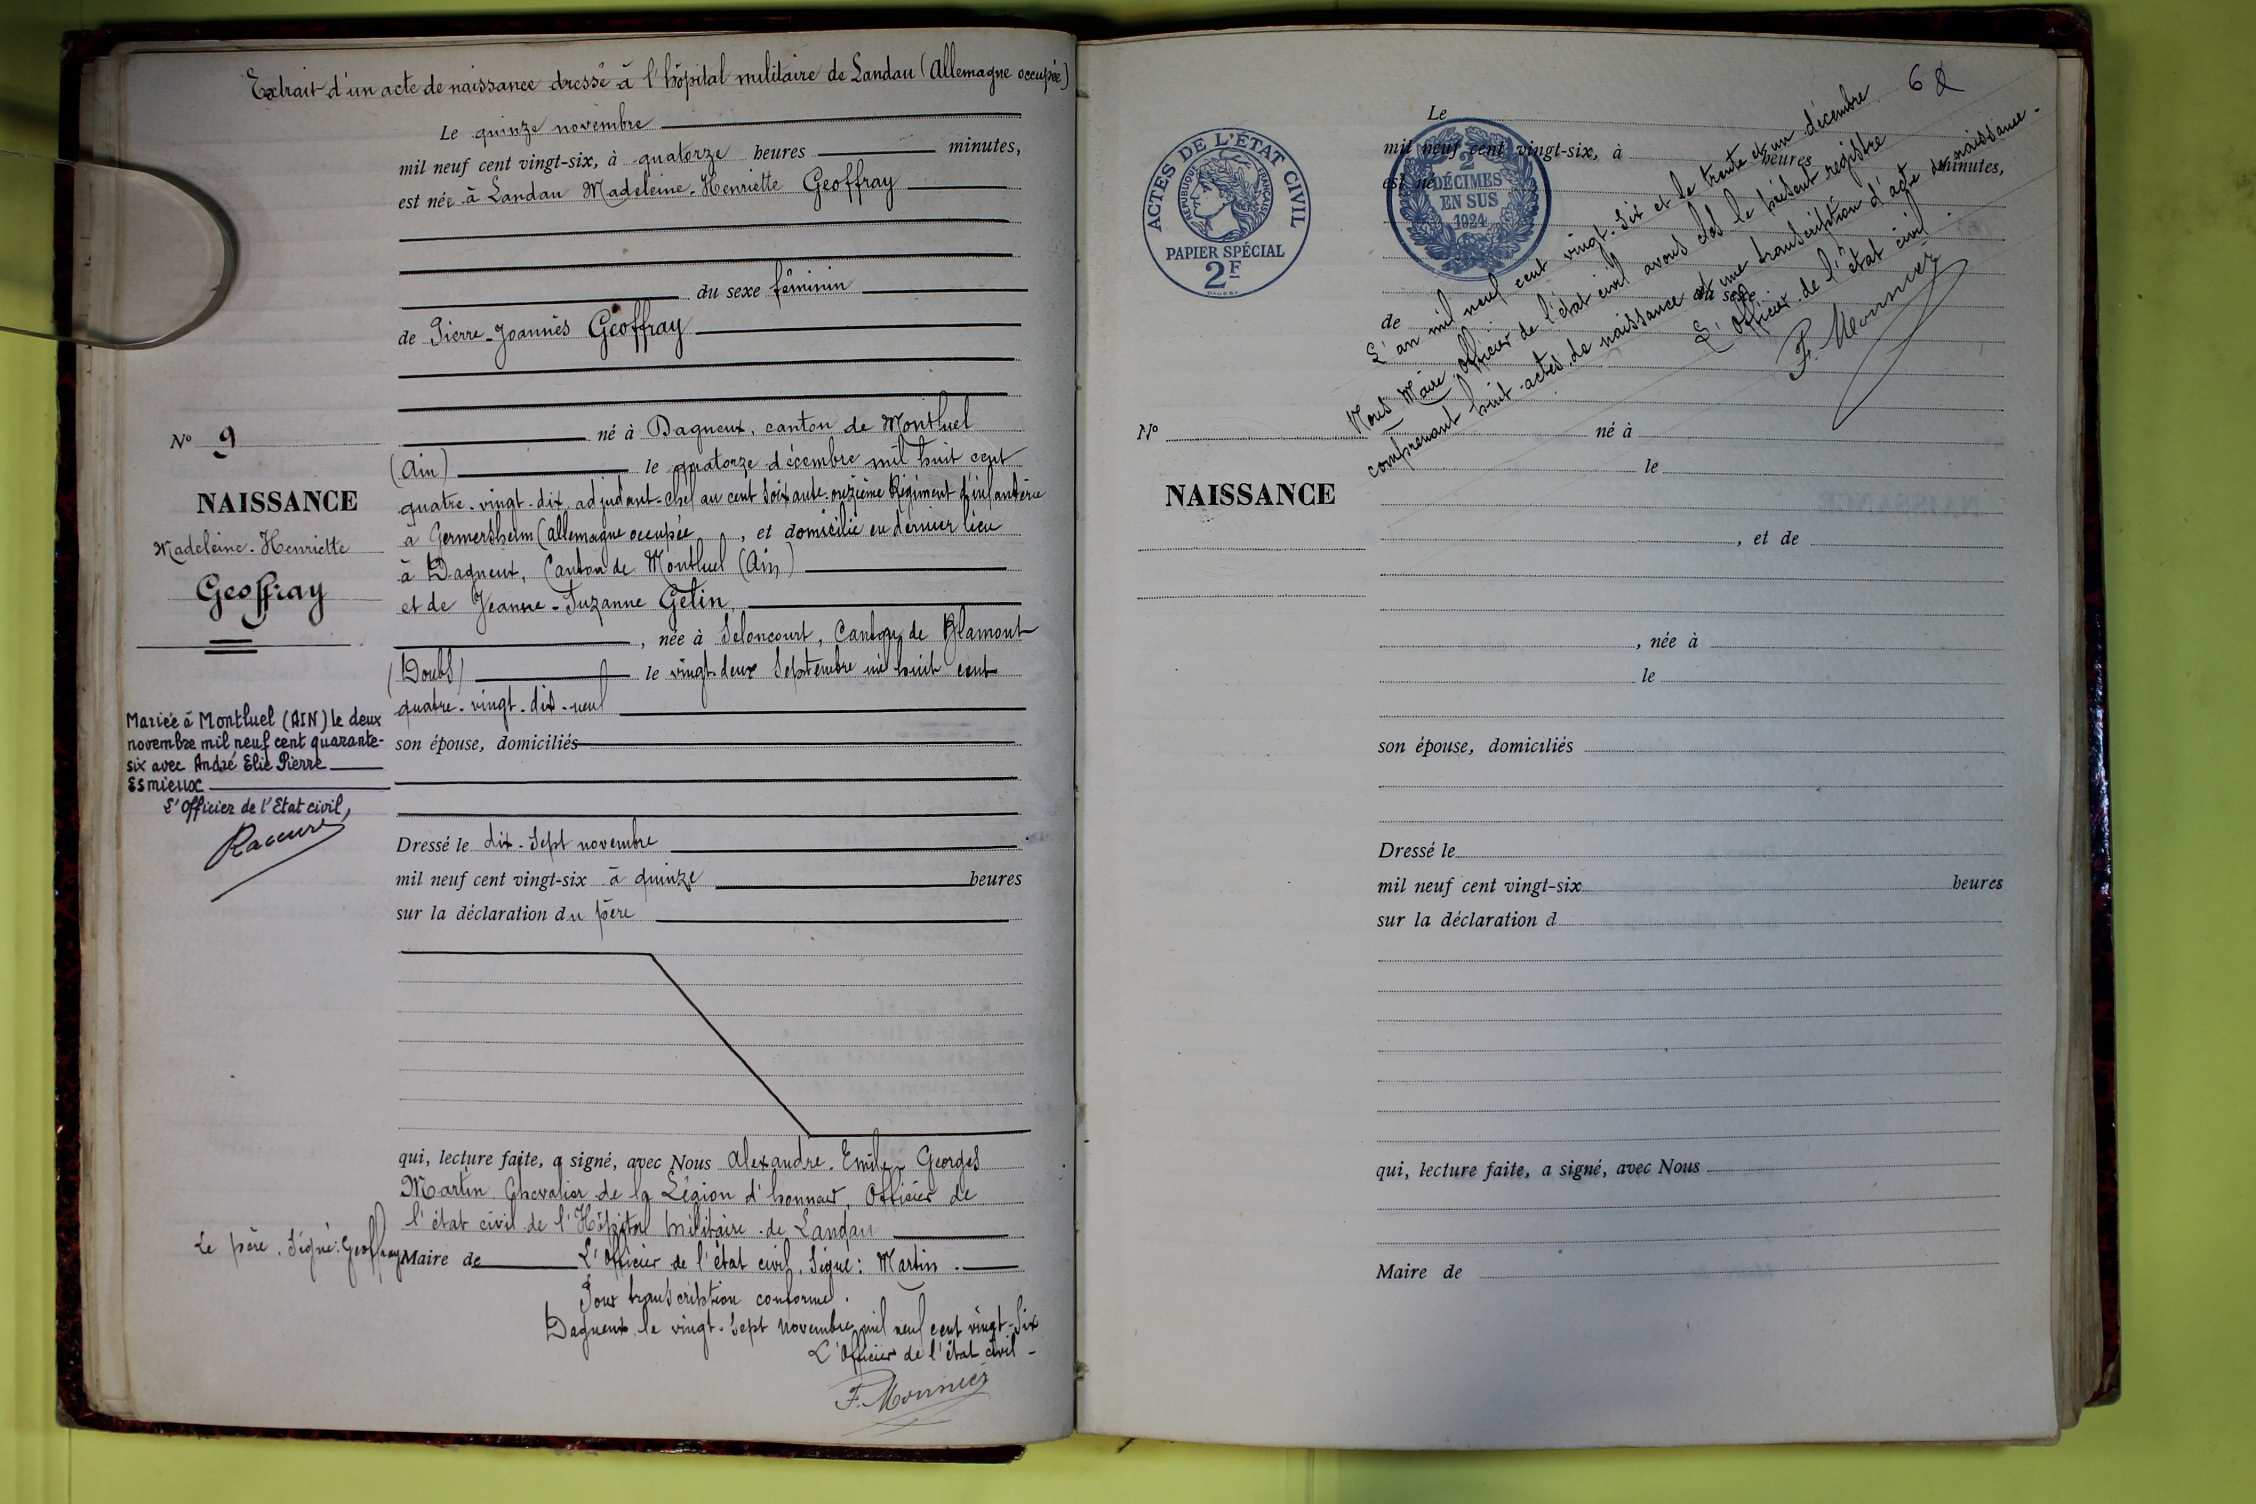 Extrait d'un acte de naissance dressé à l'hôpital militaire de Landau (Allemagne occupée)
Le quinze novembre
mil neuf cent vingt-six, à quatorze heures minutes,
est née à Landau Madeleine-Henriette Geoffray
du sexe féminin
de Pierre-Joannès Geoffray
N° 9
né à Dagneux, canton de Montluel
(Ain) le quatorze décembre mil huit cent
quatre-vingt-dix, adjudant-chef au cent soixante-onzième Régiment d'infanterie
à Germersheim (allemagne occupée, et domicilié en dernier lieu
à Dagneux, Canton de Montluel (Ain)
et de Jeanne-Suzanne Gelin,
, née à Seloncourt, Canton de Blamont
(Doubs) le vingt deux Septembre mil huit cent
quatre-vingt-dix-neuf
son épouse, domiciliés
NAISSANCE
Madeleine-Henriette
Geoffray
Mariée à Montluel (AIN) le deux
novembre mil neuf cent quarante-
six avec André Elie Pierre
Esmieux
L'Officier de l'Etat civil,
Dressé le dix-sept novembre
mil neuf cent vingt-six à quinze heures
sur la déclaration du père
qui, lecture faite, a signé, avec Nous Alexandre-Emile-Georges
Martin Chevalier de la Légion d'honneur Officier de
l'état civil de l'Hôpital militaire de Landau
Le père. Signé: Geoffray
Maire de L'Officier de l'état civil, Signé: Martin.
Pour transcription conforme.
Dagneux, le vingt-sept novembre mil neuf cent vingt-six
L'Officier de l'état civil -
F. Monnier
62
ACTES DE L'ÉTAT CIVIL
RÉPUBLIQUE FRANÇAISE
PAPIER SPÉCIAL
2F
2
DÉCIMES
EN SUS
1924
Le
mil neuf cent vingt-six, à heures minutes,
est né
du sexe
de
L'an mil neuf cent vingt-six et le trente et un décembre
Nous Maire, Officier de l'état civil avons clos le présent registre
comprenant huit actes de naissance et une transcription d'acte de naissance.
L'Officier de l'état civil.
F. Monnier
N°
né à
le
NAISSANCE
, et de
, née à
le
son épouse, domiciliés
Dressé le
mil neuf cent vingt-six heures
sur la déclaration d
qui, lecture faite, a signé, avec Nous
Maire de